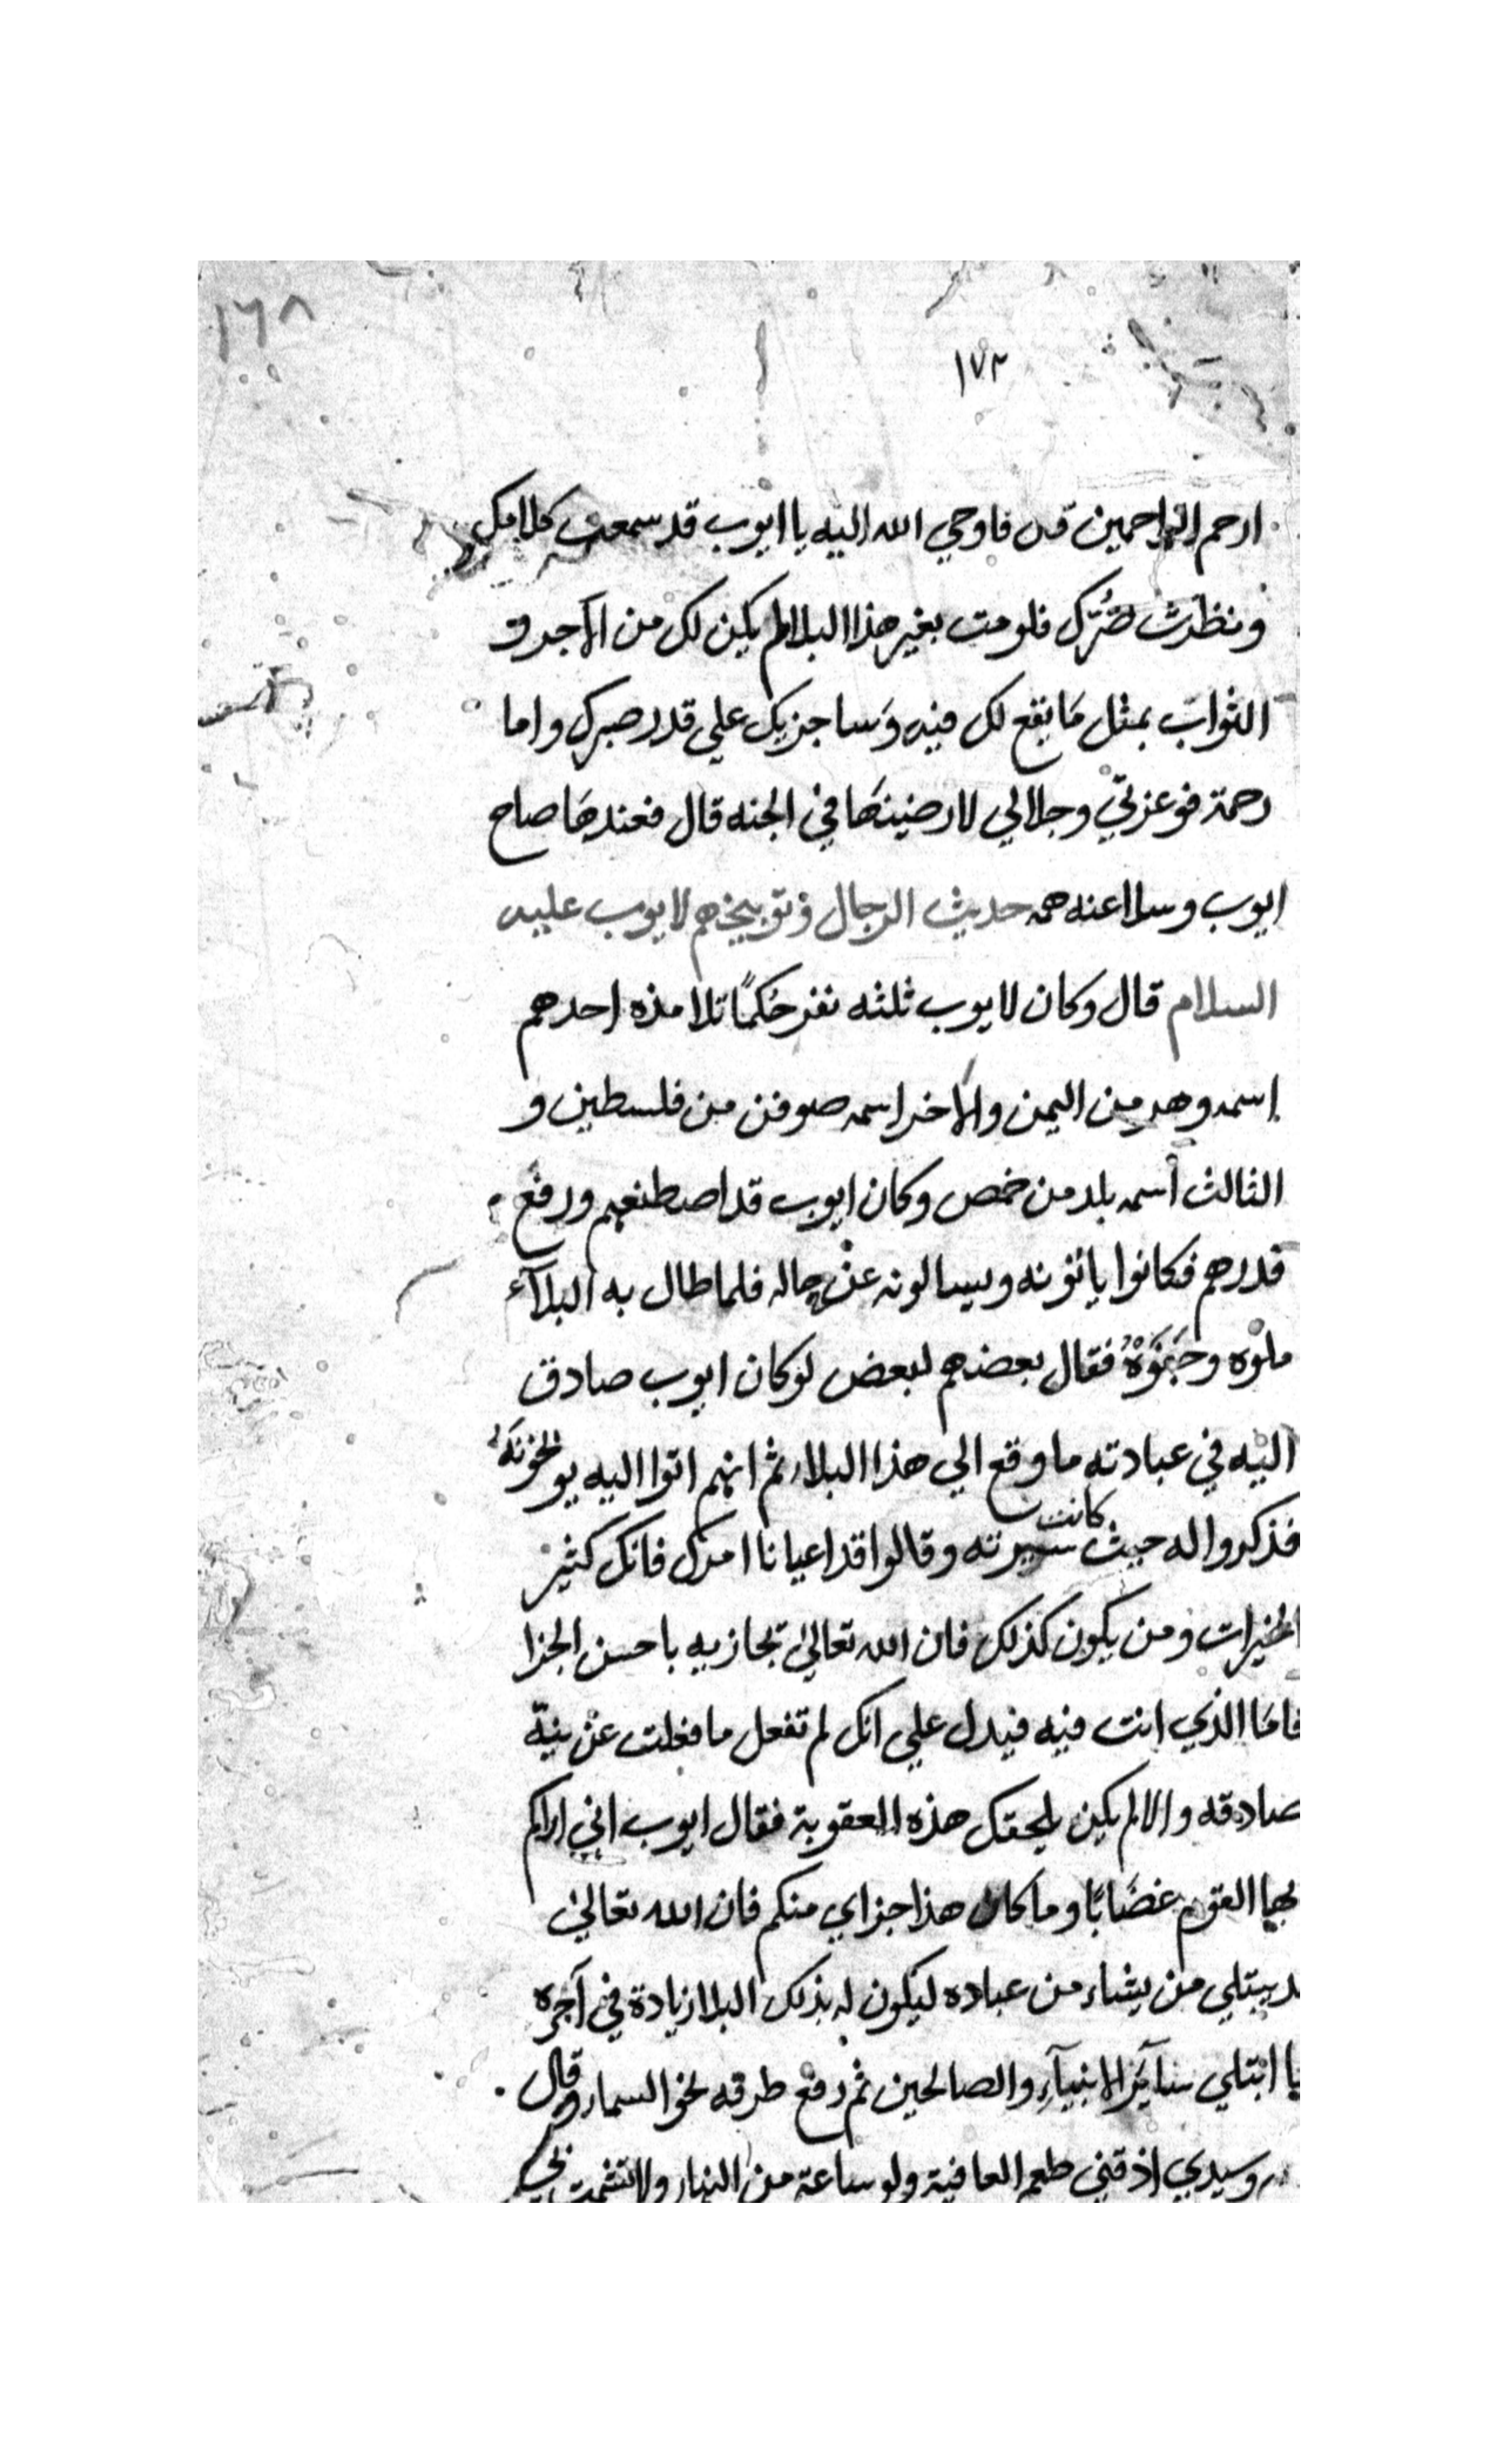 ١٦٨
١٧٢
ارحم الراحمين قال فاوحي الله اليه يا ايوب قد سمعت كلامك
ونظرت ضُرّك فلو مت بغير هذا البلا لم يكن لك من الاجر و
الثواب بمثل مَا يقع لك فيه وَساجزيك علي قدر صبرك واما
رحمة فوعزتيّ وجلالي لارضينهَا في الجنه قال فعندهَا صاح
ايوب وسلا عنه همه حديث الرجال وتوبيخهم لايوب عليه
السلام قال وكان لايوب ثلثه نفر حُكمًا تلامذه احدهم
اسمه وهد من اليمن والاخر اسمه صوفن من فلسطين و
الثالث اسمه بلد من حمص وكان ايوب قد اصطنعهم ورفع
قدرهم فكانوا ياتونه ويسالونه عن حاله فلما طال به البلآء
ملوه وجَفَوْهُ فقال بعضهم لبعض لو كان ايوب صادق
اليه في عبادته ما وقع الي هذا البلاء ثم انهم اتوا اليه يوبخونَهُ
فذكروا له حيث كانت سيرته وقالوا قد اعيانا امرك فانك كثير
الخيرات ومن يكون كذلك فان الله تعالي يجازيه باحسن الجزا
فامَا الذي انت فيه فيدل علي انك لم تفعل ما فعلت عن نيّة
صادقه والا لم يكن يلحقك هذه العقوبة فقال ايوب اني اراكم
ايها القوم غضَابًا وما كان هذا جزاي منكم فان الله تعالي
قد يبتلي من يشاء من عباده ليكون له بذلك البلا زيادة في آجره
ابتلي سآير الانبيآء والصالحين ثم رفع طرفه نحو السماء وقال
وسيدي اذقني طعم العافية ولو ساعة من النهار ولا تشمت بي